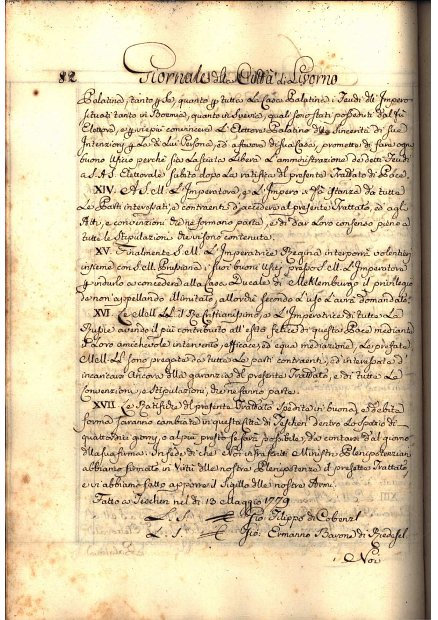 82 Giornale della Città di Livorno
Palatina, tanto p Se, quanto p tutta La Casa Palatina i Feudi dell Impero
situati tanto in Boemia, quanto in Svevia, quali sono stati posseduti dal fu
Elettore, e convinta L'Elettore Palatino della Sincerità di sue
Intenzioni p La di Lui Persona, ed a favore di sua Casa, promette di fare ogni
buono Ufizio perchè sia Lasciata Libera L'amministrazione dei detti Feudi
a S. A. S. Elettorale subito dopo La ratifica del presente Trattato di Pace.
XIV. A S. M. L'Imperatore, e L'Impero a istanza di tutte
Le Parti interessate, e contraenti d'accedere al presente Trattato, ed agli
Atti, e convenzioni che ne formano parte, e di dar Loro consenso pieno a
tutte le Stipulazioni che vi sono contenute.
XV. Finalmente S. M. L'Imperatrice Regina interporrà volentieri
insieme con S. M. Prussiana i suoi buoni Ufizj presso S. M. L'Imperatore
p indurlo a concedere alla Casa Ducale di Meklemburgo il privilegio
de non appellando illimitato, allorchè secondo L'uso L'avrà domandato.
XVI. Le MM. LL. Il Re Cristianissimo, e L'Imperatrice di tutte La
Russie avendo il più contribuito all'esito felice di questa Pace mediante
il Loro amichevole intervento, efficace, ed equa mediazione, Le prefate
MM. LL. sono pregate da tutte Le parti contraenti, ed interessate d'
incaricarsi Ancora della garanzia del presente Trattato, e di tutte Le
Convenzioni, e Stipulazioni, che ne fanno parte.
XVII. Le Ratifiche del presente Trattato Spedite in buona, e debita
forma saranno cambiate in questa Città di Teschen dentro Lo spazio di
quattordici giorni, o al più presto se sarà possibile, da contarsi dal giorno
della sua firma. In fede di che Noi infrascritti Ministri Plenipotenziarj
abbiamo firmato in Virtù delle nostre Plenipotenze il presente Trattato
e vi abbiamo fatto apporre il Sigillo delle nostre Armi.
Fatto a Teschen nel dì 13 Maggio 1779
L. S. Gio: Filippo di Cobenzl
L. S. Gio: Ermanno Barone di Riedesel
Noi